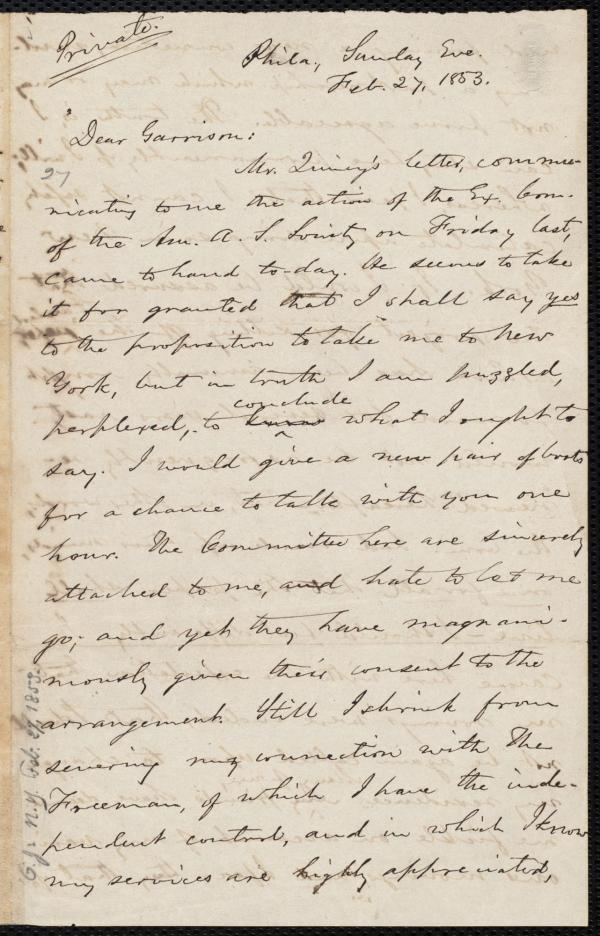 Private.
Phila., Sunday Eve.
Feb. 27, 1853.
Dear Garrison:
27
Mr. Quincy's letter, commu-
nicating to me the action of the Ex. Com.
of the Am. A. S. Society on Friday last,
came to hand to-day. He seems to take
it for granted that I shall say yes
to the proposition to take me to New
York, but in truth I am puzzled,
perplexed, to conclude what I ought to
say. I would give a new pair of boots
for a chance to talk with you one
hour. The Committee here are sincerely
attached to me, and hate to let me
go; and yet they have magnani-
mously given their consent to the
arrangement. Still I shrink from
severing my connection with The
Freeman, of which I have the inde-
pendent control, and in which I know
my services are highly appreciated,
O. J. N. Y. Feb. 27, 1853.